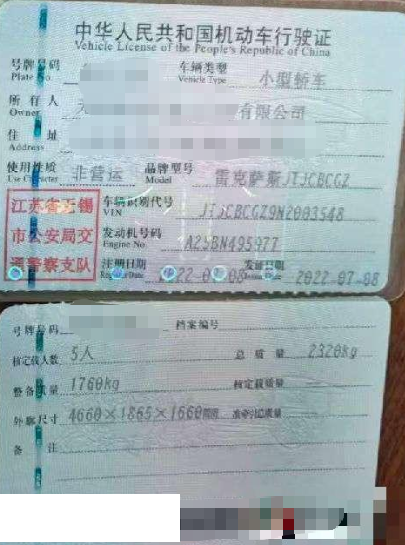 中华人民共和国机动车行驶证
Vehicle License of the People's Republic of China
号牌号码 车辆类型 小型轿车
Plate No. Vehicle Type
所有人 有限公司
Owner
住址
Address
使用性质 非营运 品牌型号 雷克萨斯JTJCBCGZ
Use Character Model
江苏省无锡
市公安局交
通警察支队
车辆识别代号 JTJCBCGZ9N2003548
VIN
发动机号码 A25BN495977
Engine No.
注册日期 发证日期 2022-07-08
Register Date Issue Date
号牌号码 档案编号
核定载人数 5人 总质量 2320kg
整备质量 1760kg 核定载质量
外廓尺寸 4660×1865×1660 准牵引总质量
备注